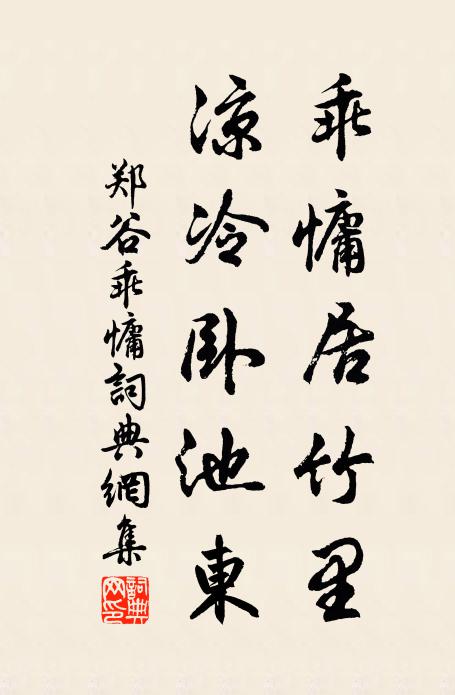 乖慵居竹里
凉冷卧池東
郑谷乖慵詞典網集
詞典网印